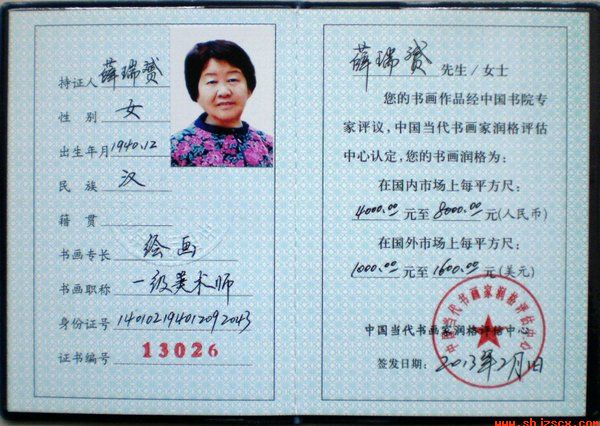 持证人 薛瑞赟
性 别 女
出生年月 1940.12
民 族 汉
籍 贯
书画专长 绘画
书画职称 一级美术师
身份证号 140102194012092043
证书编号 13026
薛瑞赟 先生/女士
您的书画作品经中国书院专
家评议，中国当代书画家润格评估
中心认定，您的书画润格为：
在国内市场上每平方尺：
4000.00 元至 8000.00 元(人民币)
在国外市场上每平方尺：
1000.00 元至 1600.00 元(美元)
中国当代书画家润格评估中心
中国当代书画家润格评估中心
签发日期： 2013年2月1日
www.shjzscx.com